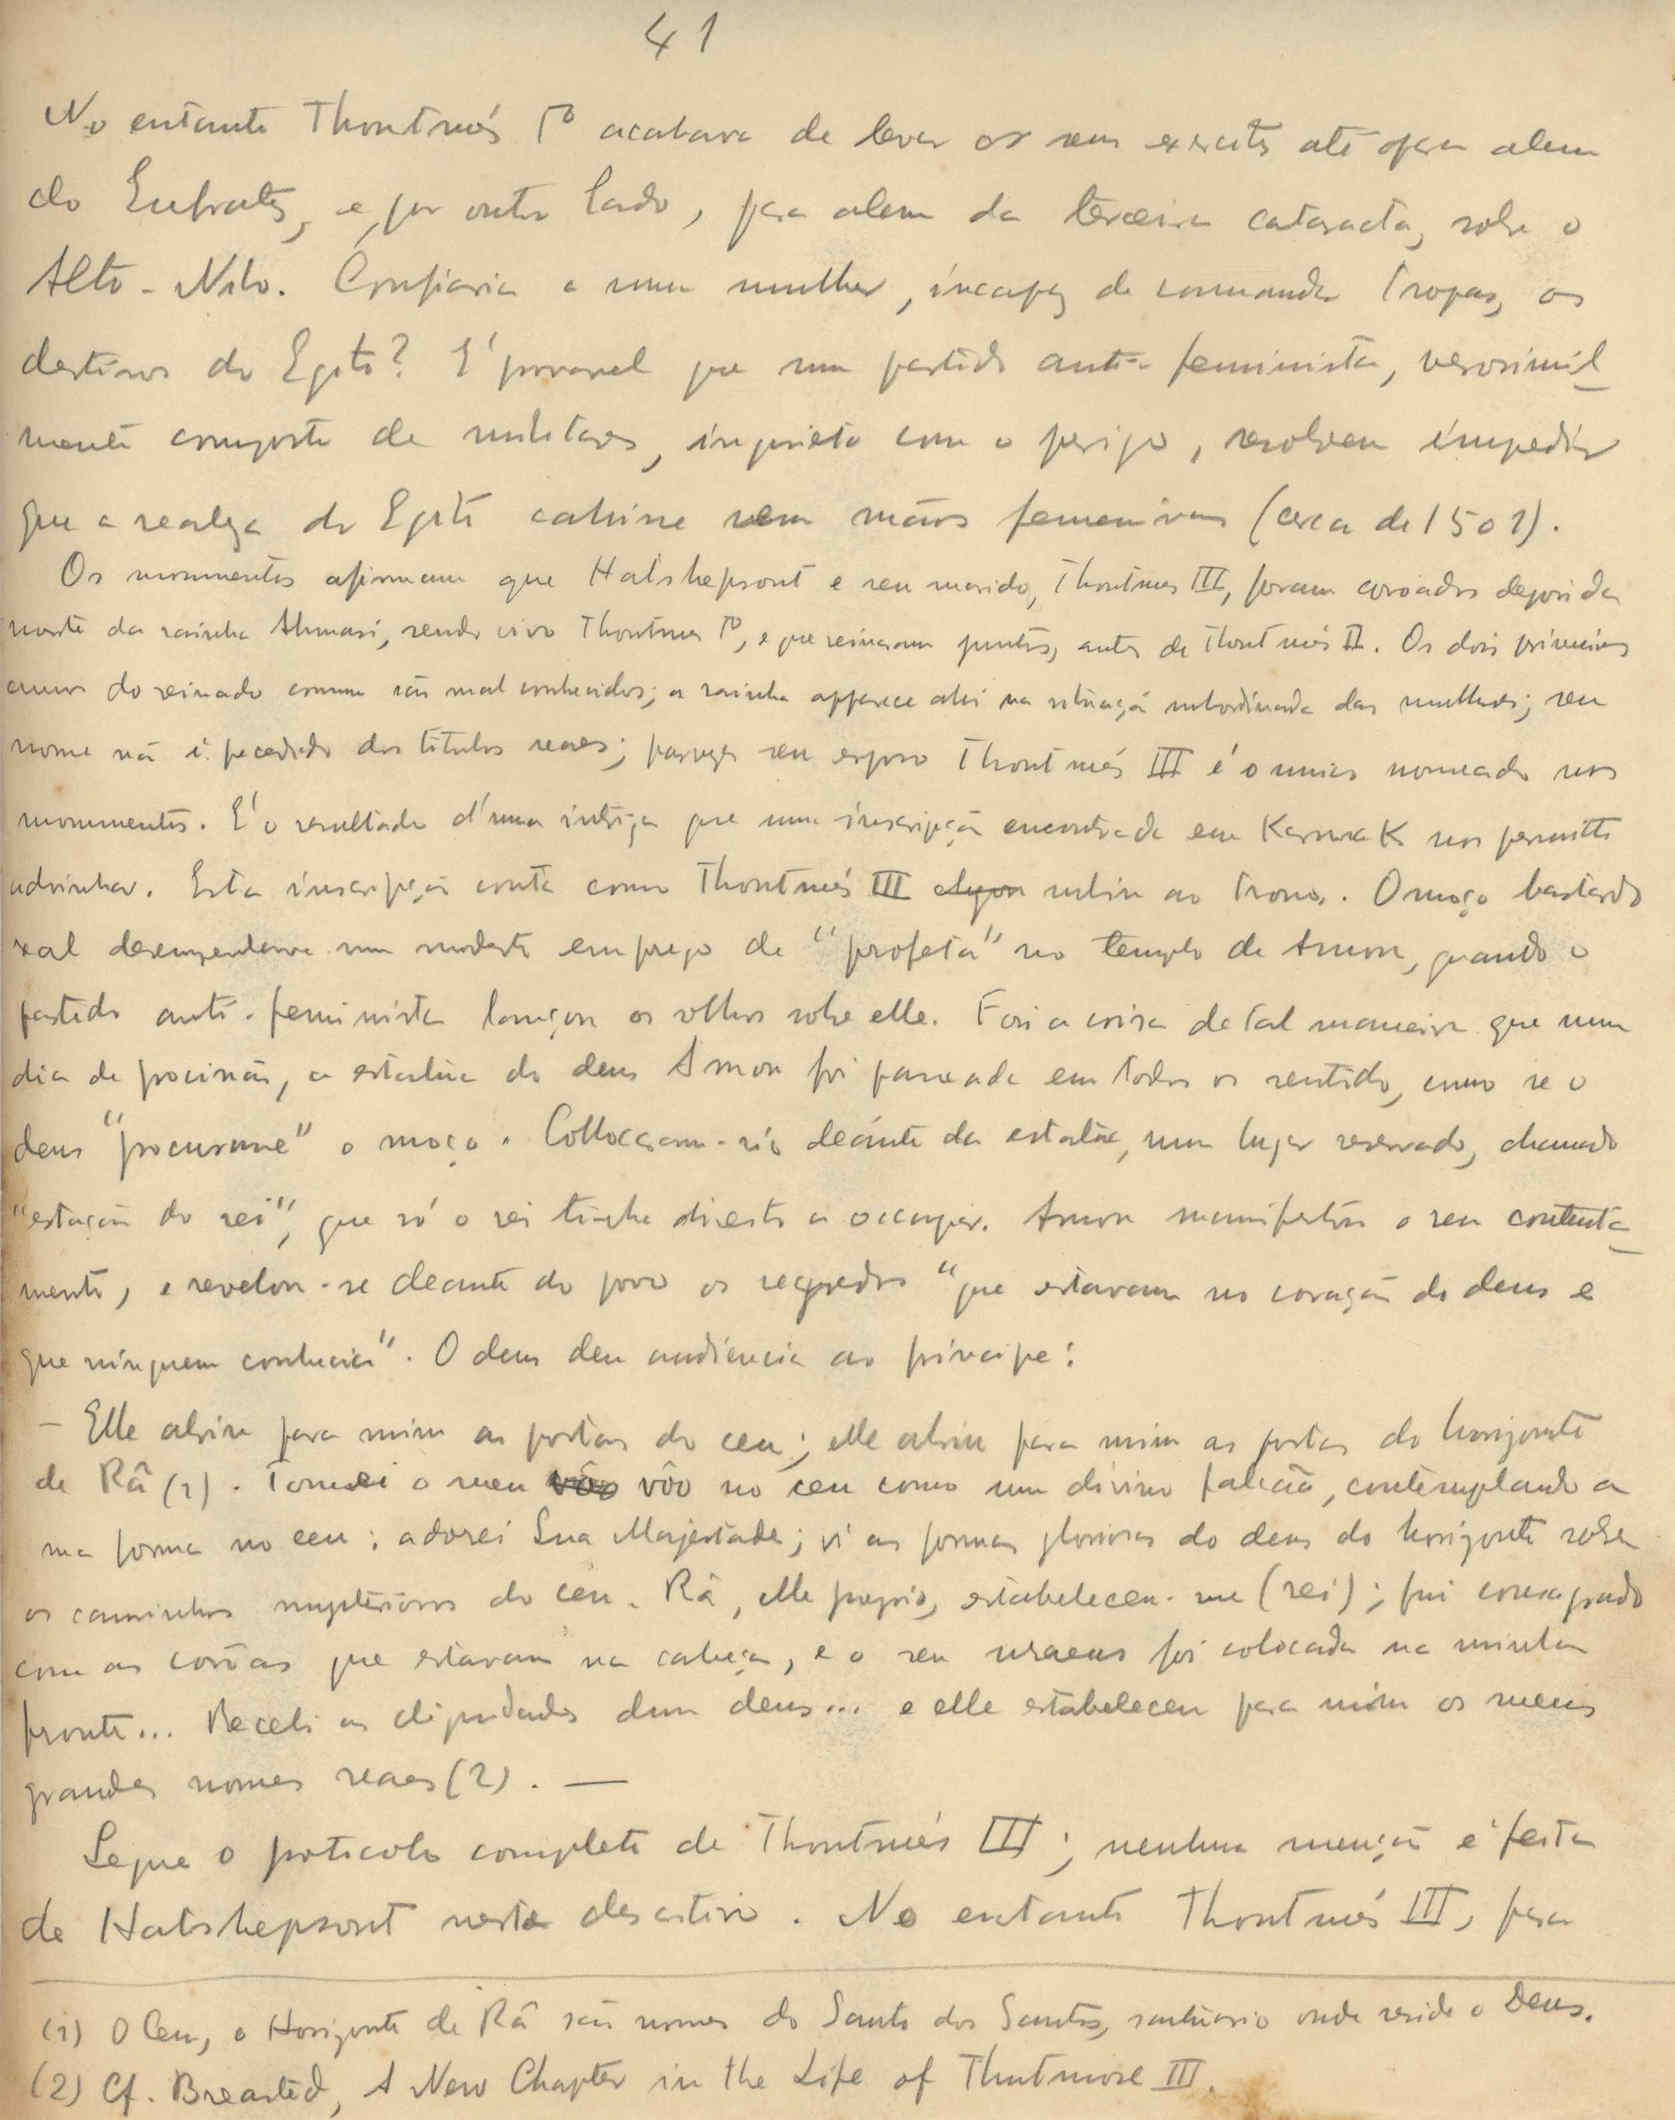 41
No entanto Thoutmés Iº acabava de levar os seus exercitos até para alem
do Eufrates, e, por outro lado, para alem da terceira cataracta, sobre o
Alto-Nilo. Confiaria a uma mulher, incapaz de commandar tropas, os
destinos do Egito? E' provavel que um partido anti-feminista, verosimil-
mente composto de militares, inquieto com o perigo, resolveu impedir
que a realeza do Egito cahisse em mãos femeninas (cerca de 1501).
Os monumentos afirmam que Hatshepsout e seu marido, Thoutmes III, foram coroados depois da
morte da rainha Ahmasi, sendo vivo Thoutmes Iº, e que reinaram juntos, antes de Thoutmés II. Os dois primeiros
annos do reinado comum são mal conhecidos; a rainha apparece ahi na situação subordinada das mulheres; seu
nome não é precedido dos titulos reaes; porque seu esposo Thoutmés III é o unico nomeado nos
monumentos. E' o resultado d'uma intriga que uma inscripção encontrada em Karnak nos permitte
advinhar. Esta inscripção conta como Thoutmés III subiu ao trono. O moço bastardo
real desempenhava um modesto emprego de "profeta" no templo de Amon, quando o
partido anti-feminista lançou os olhos sobre elle. Foi a coisa de tal maneira que num
dia de procissão, a estatua do deus Amon foi passeada em todos os sentidos, como se o
deus "procurasse" o moço. Collocaram-no deante da estatua, num lugar reservado, chamado
"estação do rei", que só o rei tinha direito a occupar. Amon manifestou o seu contenta-
mento, e revelou-se deante do povo os segredos "que estavam no coração do deus e
que ninguem conhecia". O deus deu audiencia ao principe:
– Elle abriu para mim as portas do ceu; elle abriu para mim as portas do horizonte
de Râ (1). Tomei o meu vôo no ceu como um divino falcão, contemplando a
sua forma no ceu; adorei Sua Majestade; vi as formas gloriosas do deus do horizonte sobre
os caminhos mysteriosos do ceu. Râ, elle proprio, estabeleceu-me (rei); fui consagrado
com as corôas que estavam na cabeça, e o seu uraeus foi colocada na minha
fronte... Recebi as dignidades dum deus... e elle estabeleceu para mim os meus
grandes nomes reaes (2). —
Segue o protocolo completo de Thoutmés III; nenhuma menção é feita
de Hatshepsout neste. No entanto Thoutmés III, para
(1) O Ceu, o Horizonte de Râ são nomes do Santo dos Santos, santuario onde reside o Deus.
(2) Cf. Breasted, A New Chapter in the Life of Thutmose III.